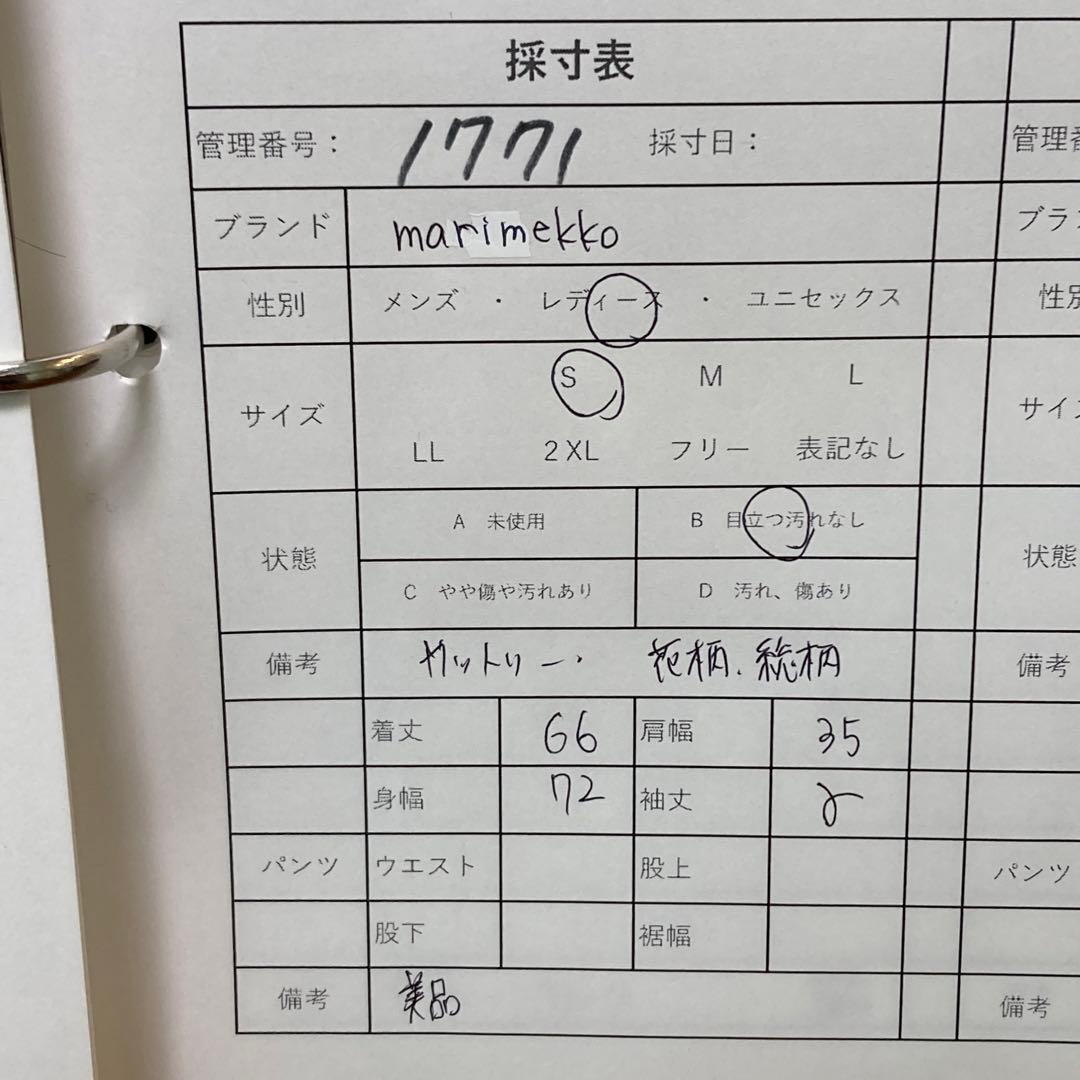 採寸表
管理番号： 1771 採寸日： 管理番
ブランド marimekko ブラン
性別 メンズ ・ レディース ・ ユニセックス 性別
サイズ S M L サイズ
LL 2XL フリー 表記なし
状態 A 未使用 B 目立つ汚れなし 状態
C やや傷や汚れあり D 汚れ、傷あり
備考 カットソー. 花柄.総柄 備考
着丈 66 肩幅 35
身幅 72 袖丈
パンツ ウエスト 股上 パンツ
股下 裾幅
備考 美品 備考